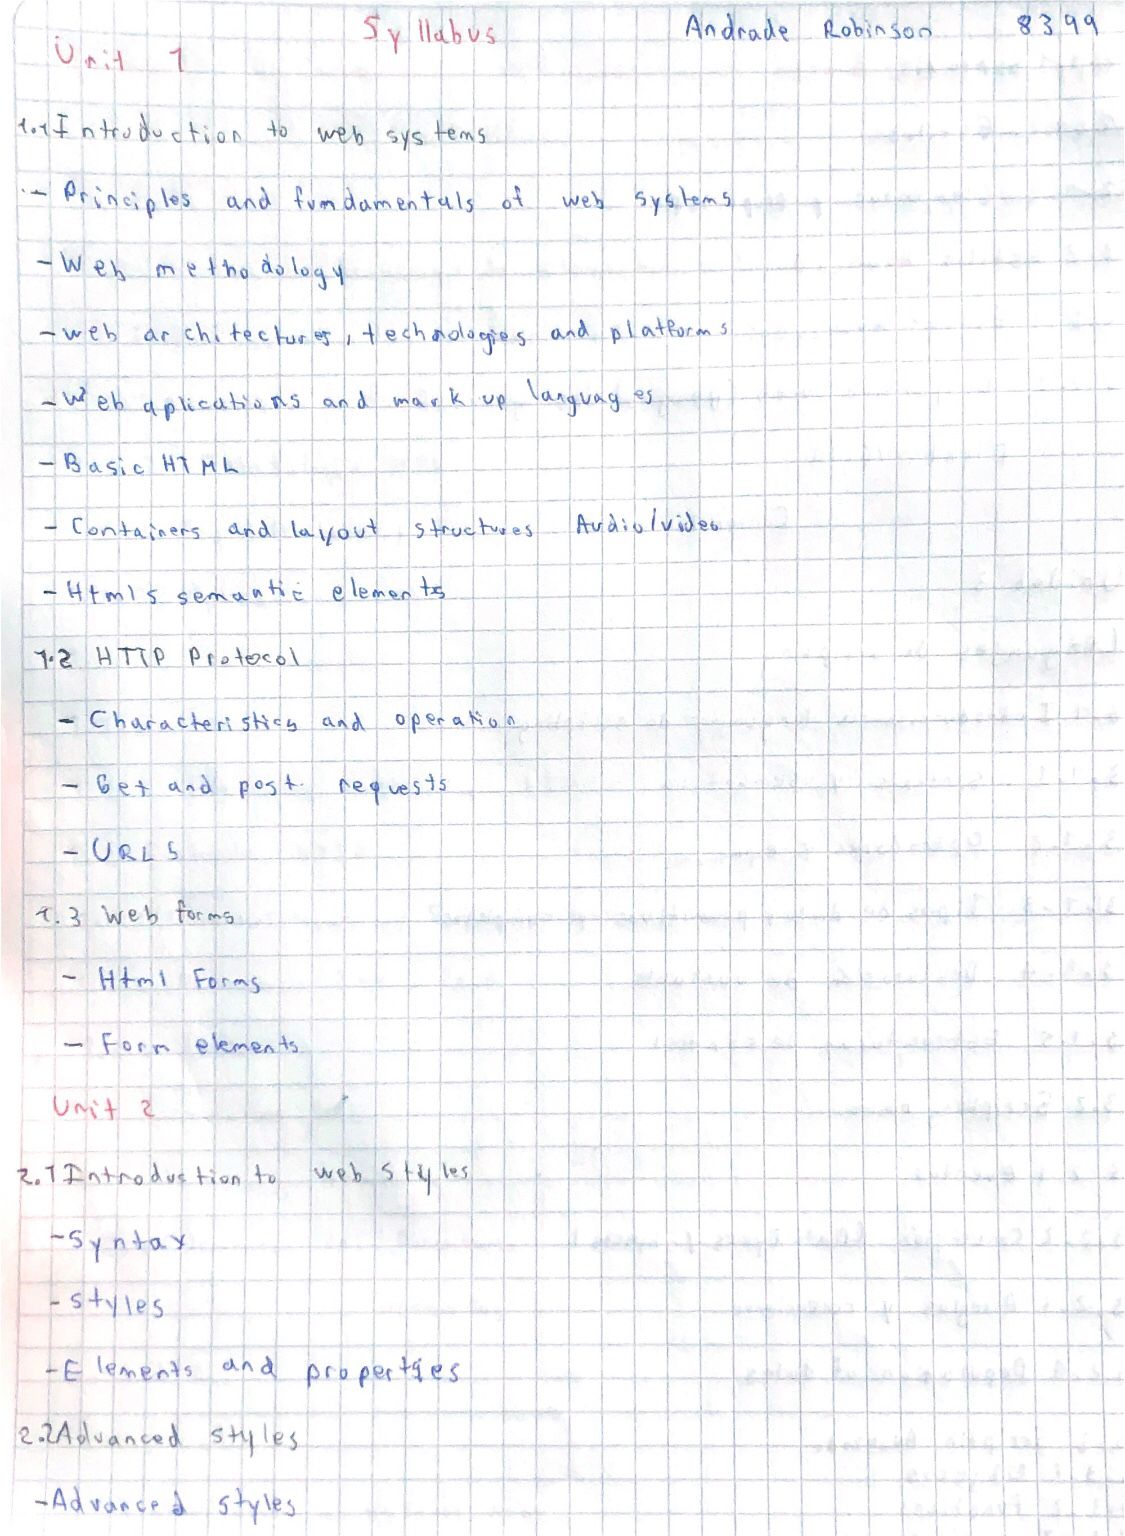 Syllabus Andrade Robinson 8399
Unit 1
1.1 Introduction to web systems
- Principles and fundamentals of web systems
- Web methodology
- web architectures, technologies and platforms
- Web aplications and mark up languages
- Basic HTML
- Containers and layout structures Audio/video
- Html5 semantic elements
1.2 HTTP Protocol
- Characteristics and operation
- Get and post requests
- URLS
1.3 Web forms
- Html Forms
- Form elements
Unit 2
2.1 Introduction to web styles
- Syntax
- Styles
- Elements and properties
2.2 Advanced styles
- Advanced styles